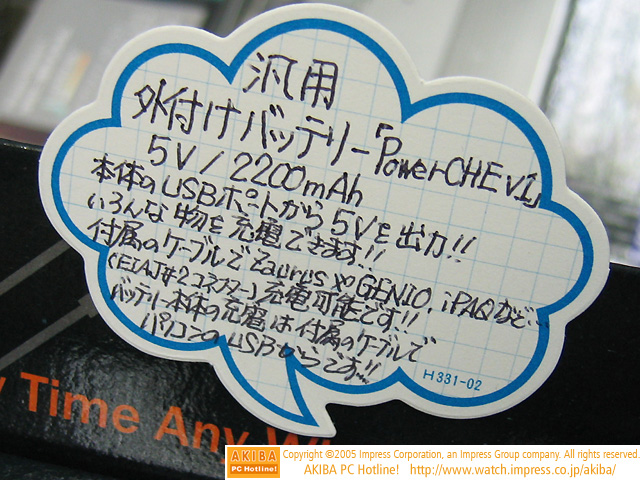 汎用
外付けバッテリー「PowerCHE VI」
5V/2200mAh
本体のUSBポートから5Vを出力!!
いろんな物を充電できます!!
付属のケーブルでZaurusやGENIO, iPAQなど...
(EIAJ#2コネクター)充電可能です!!
バッテリー本体の充電は付属のケーブルで
パソコンのUSBからです!!
H331-02
Time Any
AKIBA
PC Hotline!
Copyright ©2005 Impress Corporation, an Impress Group company. All rights reserved.
AKIBA PC Hotline! http://www.watch.impress.co.jp/akiba/